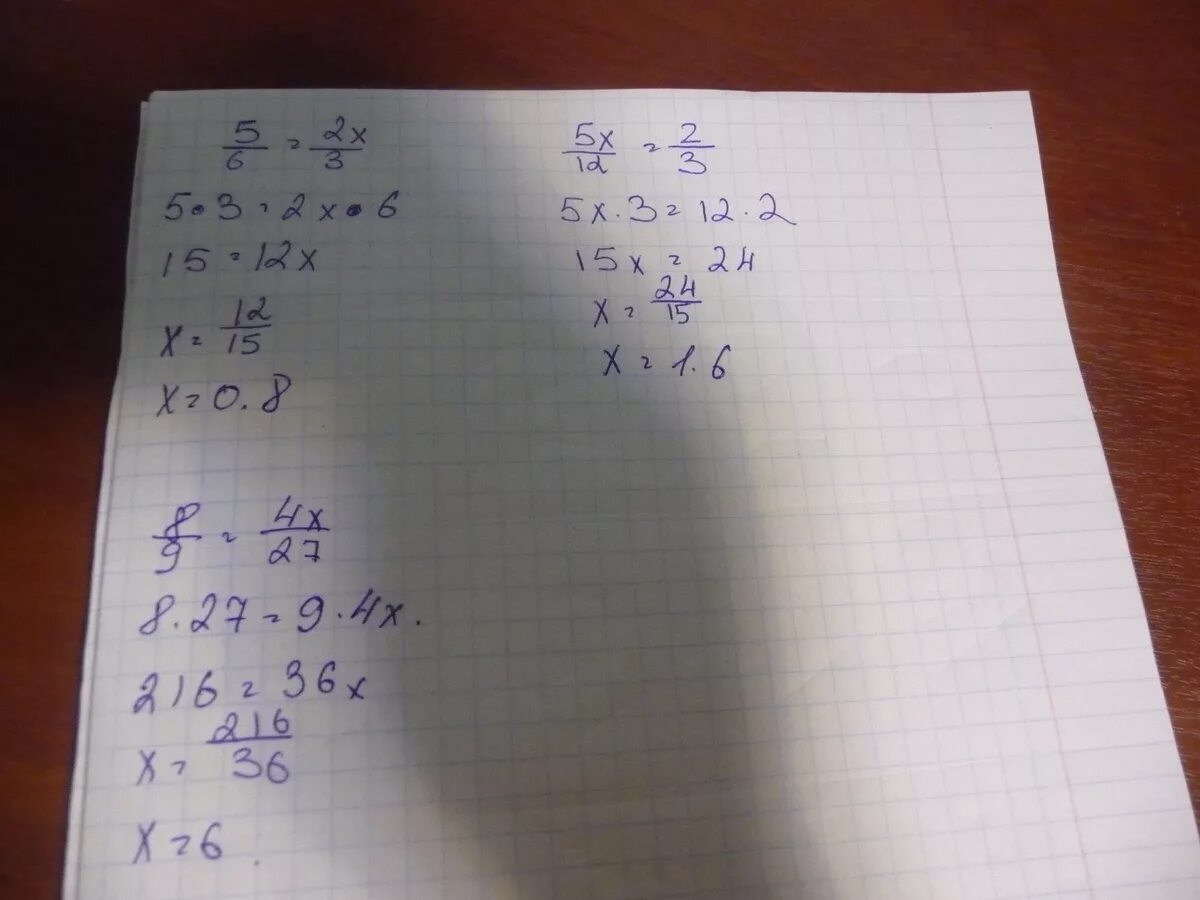 5/6 = 2x/3
5·3=2x·6
15=12x
x=12/15
x=0.8
5x/12 = 2/3
5x·3=12·2
15x=24
x=24/15
x=1.6
8/9 = 4x/27
8·27=9·4x.
216=36x
x=216/36
x=6.